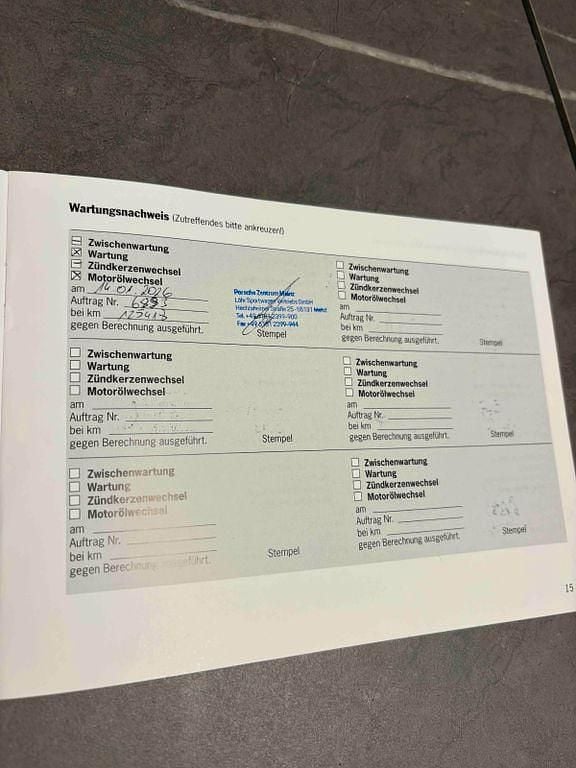 Wartungsnachweis (Zutreffendes bitte ankreuzen!)
Zwischenwartung
Wartung
Zündkerzenwechsel
Motorölwechsel
am 14.01.2026
Auftrag Nr.
bei km
gegen Berechnung ausgeführt.
Porsche Zentrum Mainz
Löhr Sportwagen Vertriebs GmbH
Stempel
Zwischenwartung
Wartung
Zündkerzenwechsel
Motorölwechsel
am
Auftrag Nr.
bei km
gegen Berechnung ausgeführt.
Stempel
Zwischenwartung
Wartung
Zündkerzenwechsel
Motorölwechsel
am
Auftrag Nr.
bei km
gegen Berechnung ausgeführt.
Stempel
Zwischenwartung
Wartung
Zündkerzenwechsel
Motorölwechsel
am
Auftrag Nr.
bei km
gegen Berechnung ausgeführt.
Stempel
Zwischenwartung
Wartung
Zündkerzenwechsel
Motorölwechsel
am
Auftrag Nr.
bei km
gegen Berechnung ausgeführt.
Stempel
Zwischenwartung
Wartung
Zündkerzenwechsel
Motorölwechsel
am
Auftrag Nr.
bei km
gegen Berechnung ausgeführt.
Stempel
15